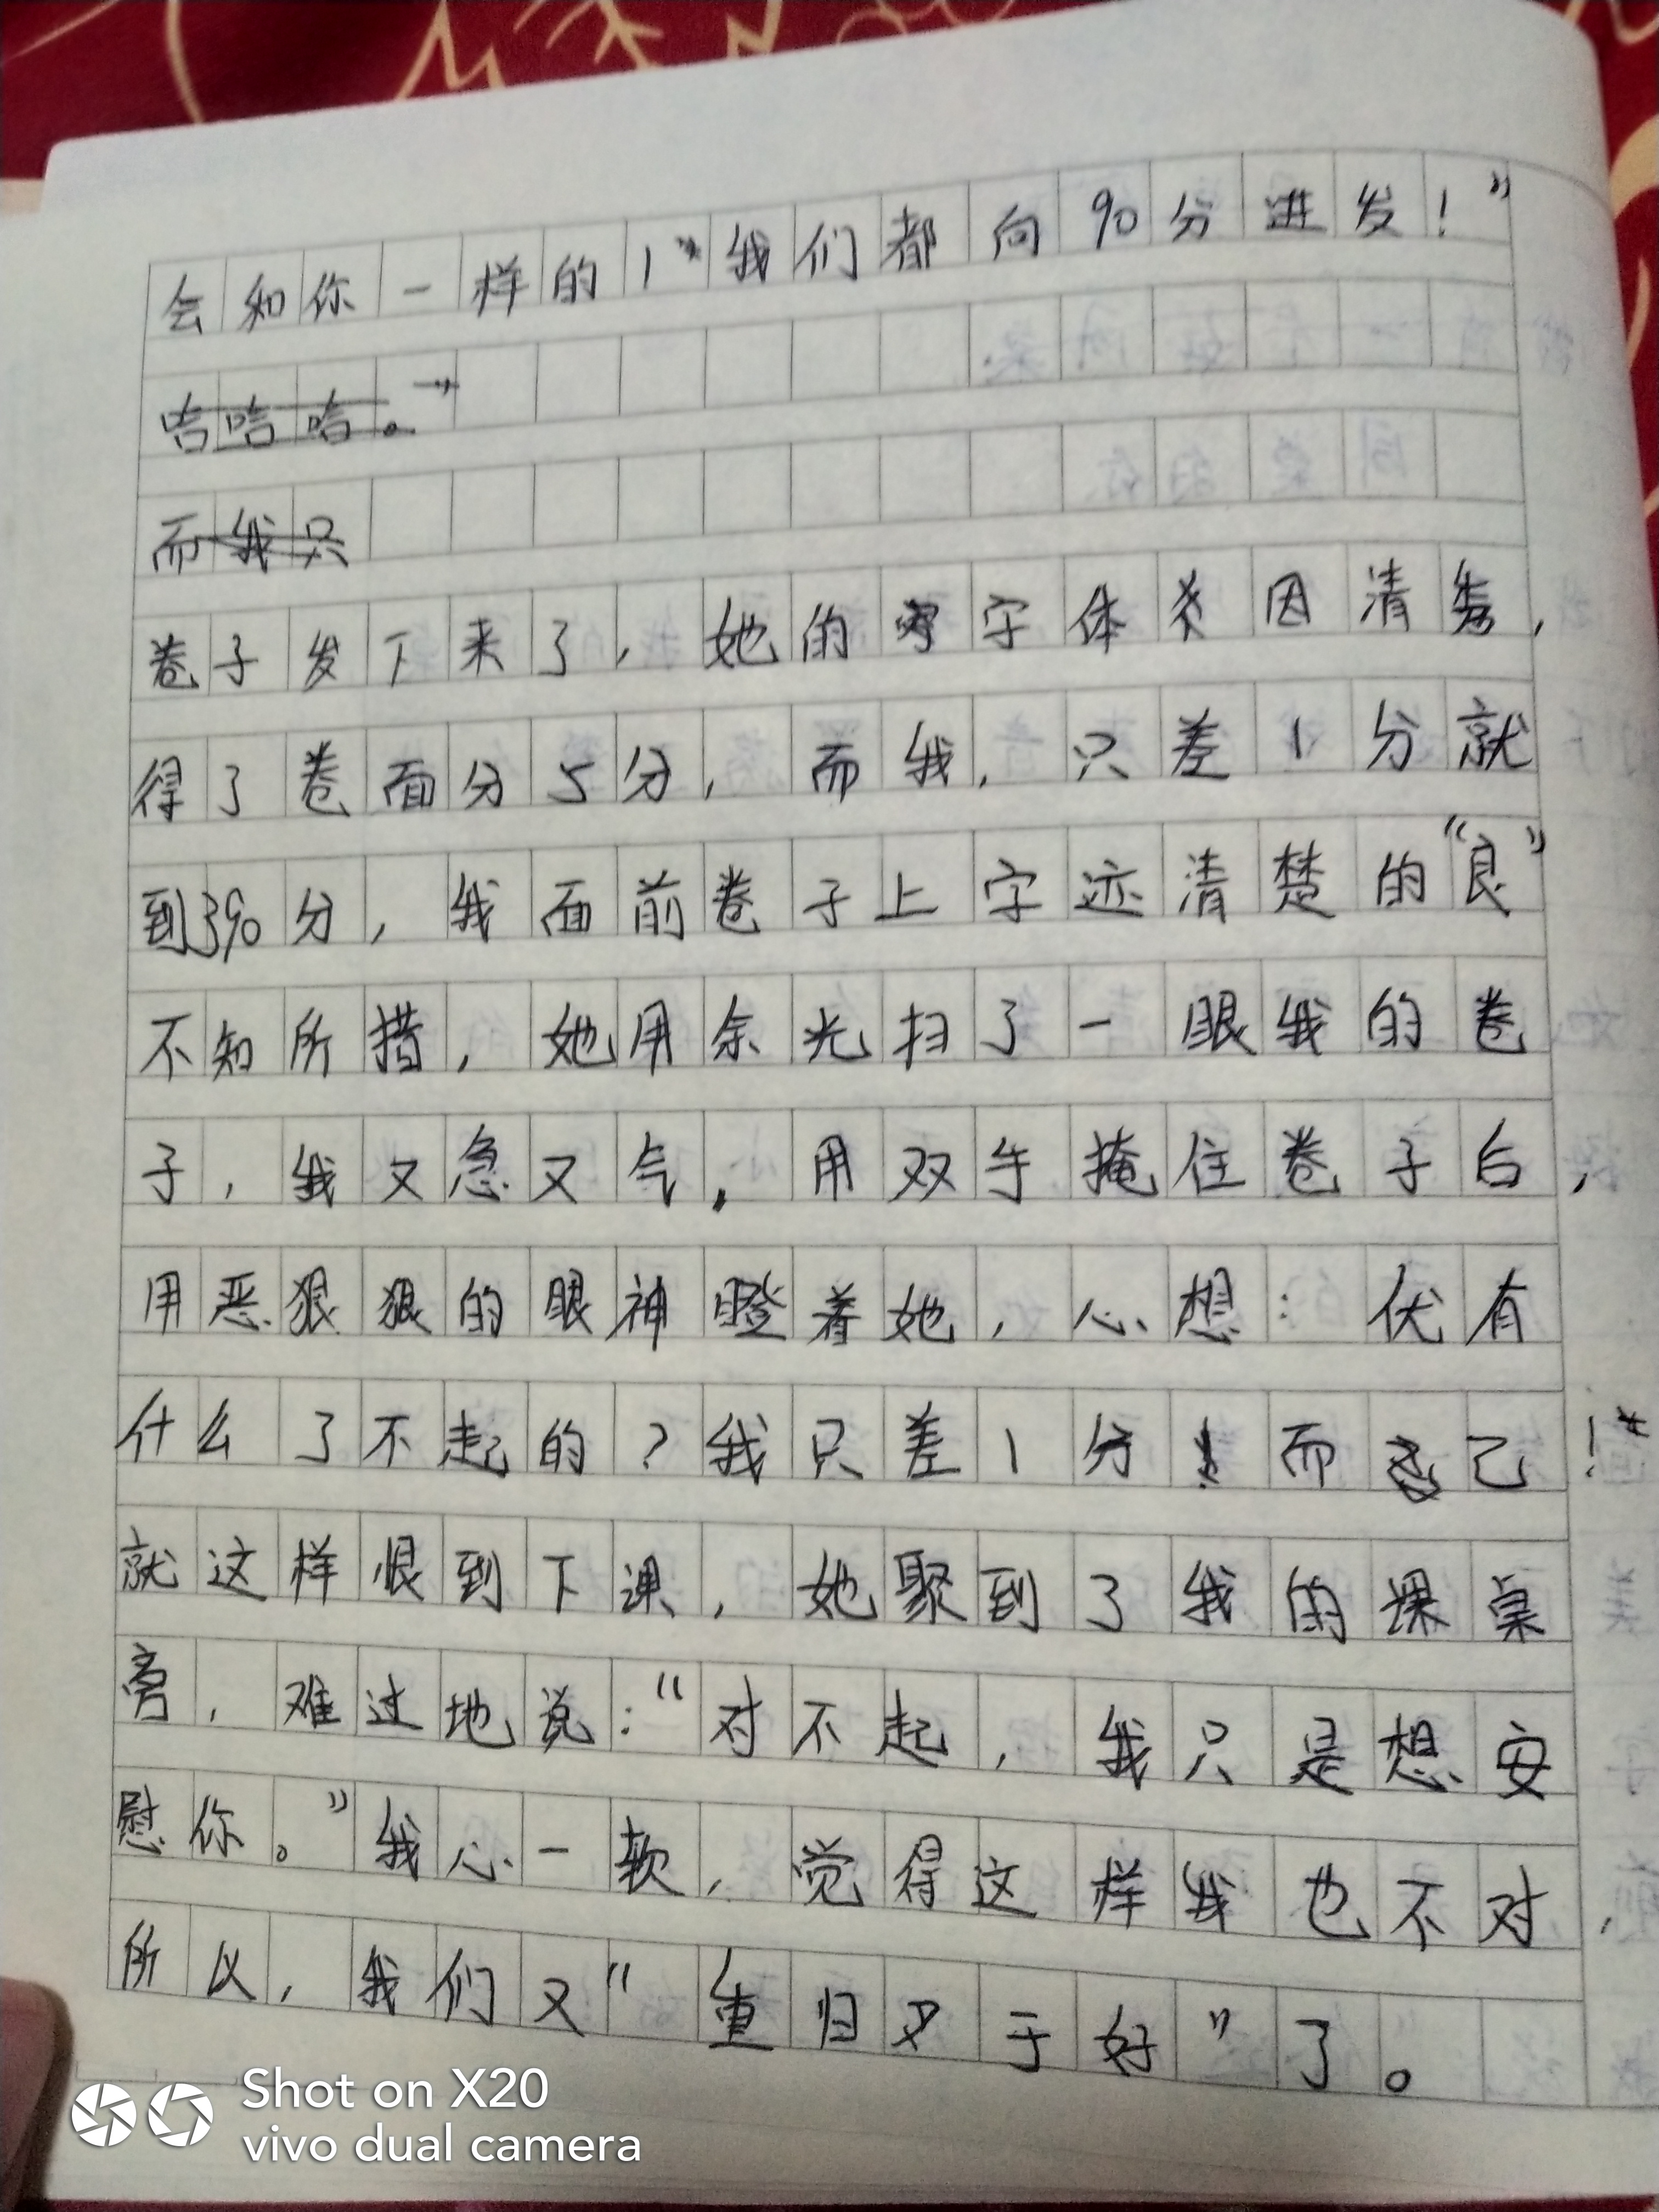 会和你一样的！”我们都向90分进发！”
哈哈哈。”
而我只
卷子发下来了，她的字体因清秀，
得了卷面分5分，而我，只差1分就
到390分，我面前卷子上字迹清楚的“良”
不知所措，她用余光扫了一眼我的卷
子，我又急又气，用双手掩住卷子后，
用恶狠狠的眼神瞪着她，心想：伏有
什么了不起的？我只差1分而已！”
就这样恨到下课，她聚到了我的课桌
旁，难过地说：“对不起，我只是想安
慰你。”我心一软，觉得这样我也不对，
所以，我们又“重归于好”了。
Shot on X20
vivo dual camera